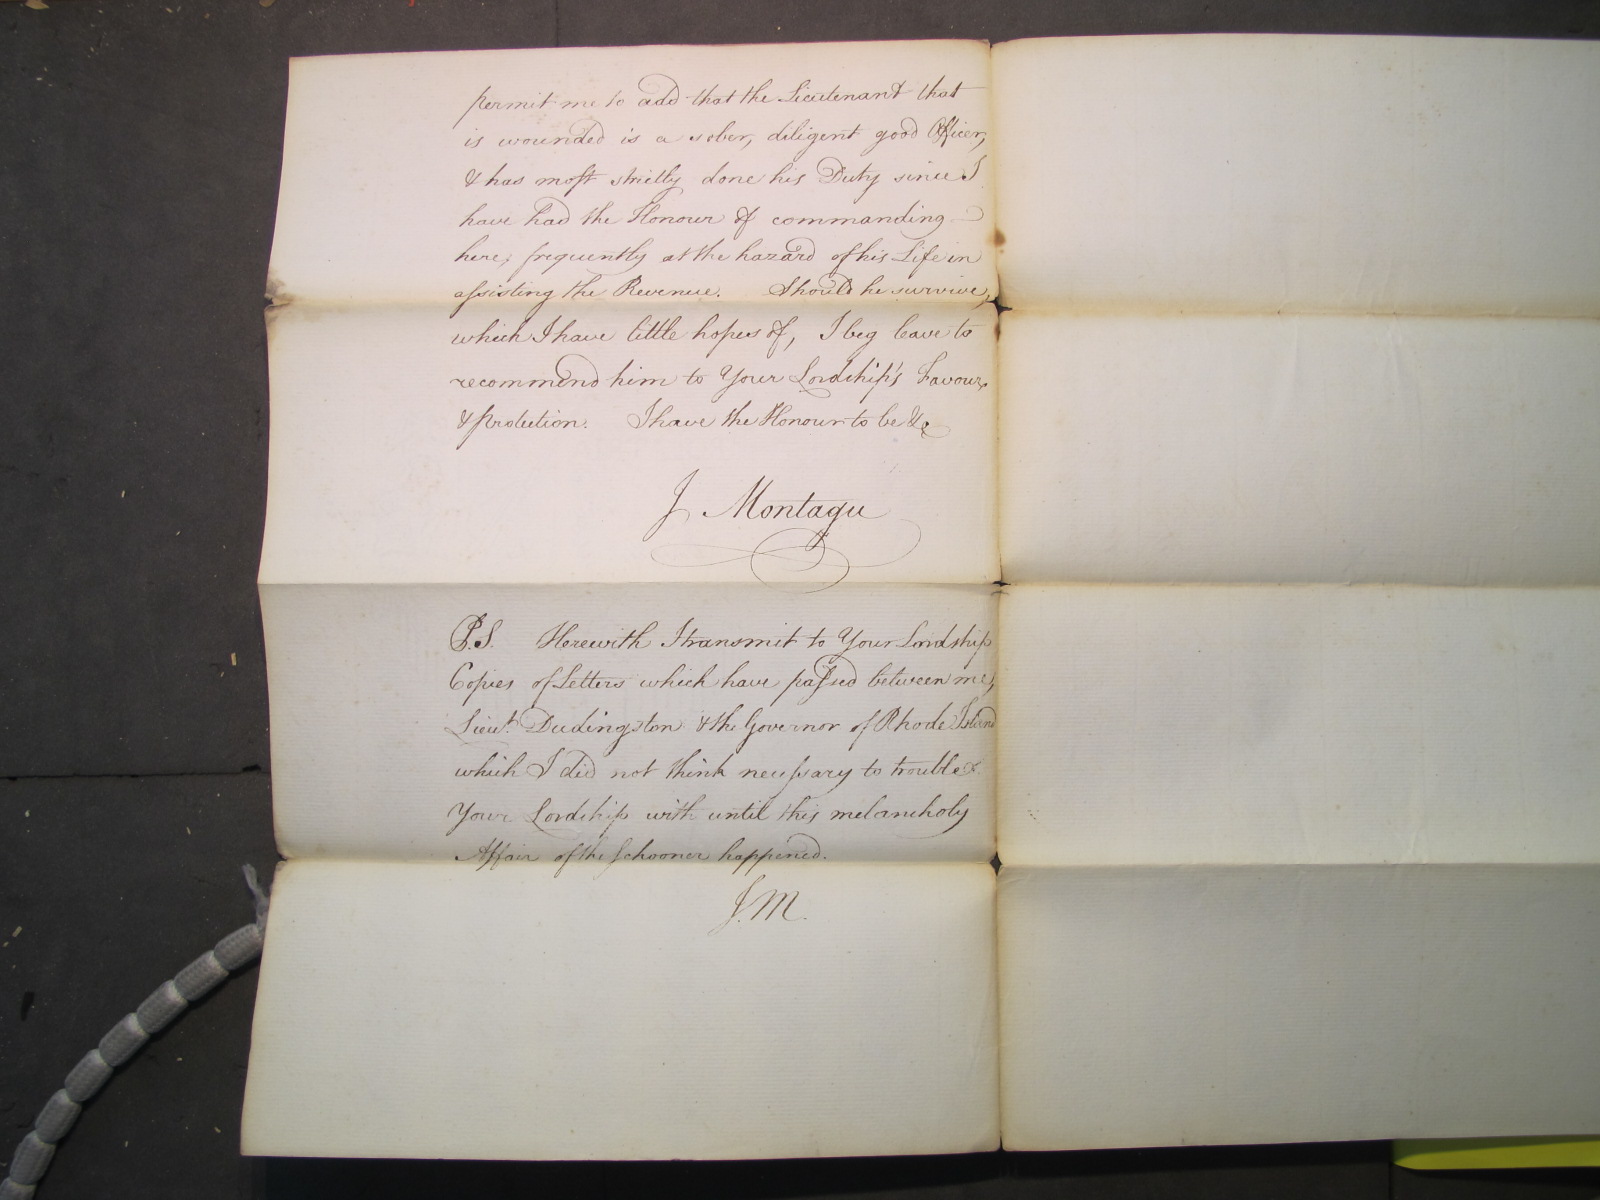 permit me to add that the Lieutenant that
is wounded is a sober, diligent good Officer,
& has most strictly done his Duty since I
have had the Honour of commanding
here, frequently at the hazard of his Life in
assisting the Revenue. Should he survive,
which I have little hopes of, I beg leave to
recommend him to Your Lordship's Favour,
& Protection. I have the Honour to be &c
J Montagu
P.S. Herewith I transmit to Your Lordship
Copies of Letters which have passed between me,
Lieut. Dudingston & the Governor of Rhode Island
which I did not think necessary to trouble
Your Lordship with until this melancholy
Affair of the Schooner happened.
J.M.